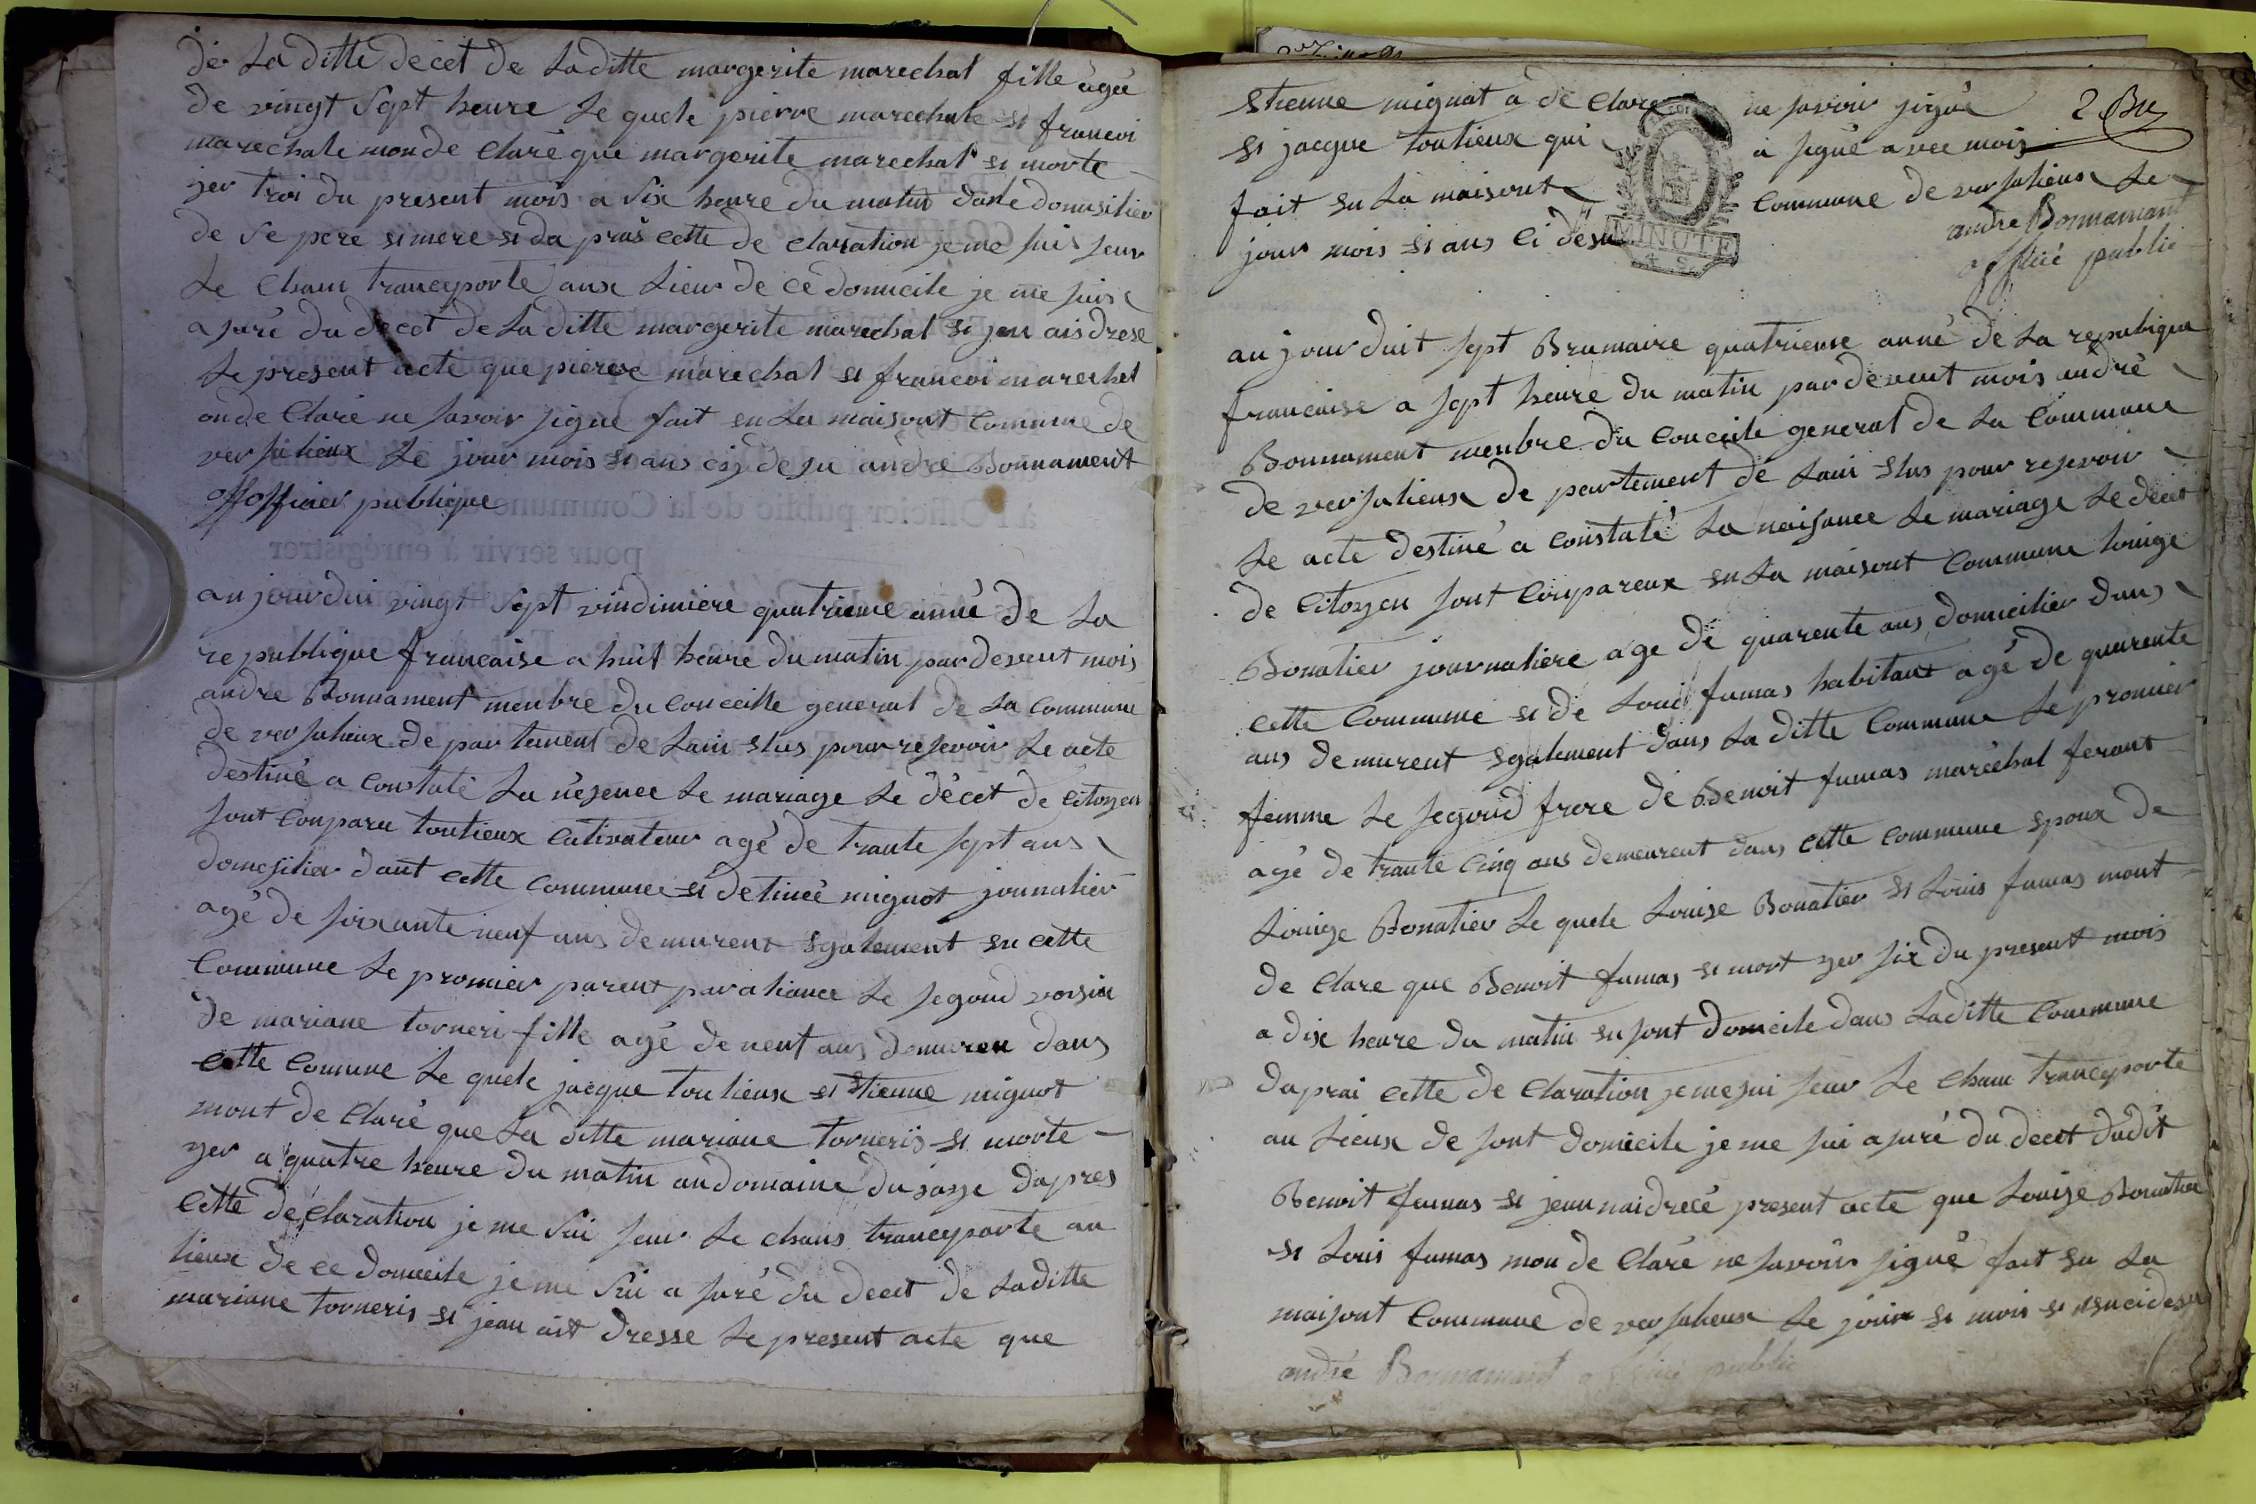 de La ditte décet de Laditte margerite marechal fille agéé
de vingt sept heure Le quele pierre marechale et francoi
marechale monde claré que margerite marechal et morte
yer troi du present mois a six heure du matin danle domisilier
de se pere et mere et da prâs cette de claration je me suis seur
Le cham transporte aux Lieur de ce domicile je me suis
a suré du décet de La ditte margerite marechal et jen ais dresé
Le present acte que pierre marechal et francoi marechel
on de claré ne savoir signe fait en La maisont commune de
versalieux Le jour mois et ans ci desu andre Bonnament
officier publique
au jourdui vingt sept vindimiere quatrieme anné de La
republique francaise a huit heure du matin par devent mois
andre Bonnament menbre du conceille general de La commune
de versalieux de partement de Lain elus pour resevoir Le acte
destiné a constaté La nésence Le mariage Le décet de citoyen
sont conparu toutieux cutivateur agé de trante sept ans
domesilier dant cette commune et detineé mignot journalier
agé de soixante neuf ans demurent egalement en cette
commune Le promier parent par aliance Le segond voisin
de mariane torneri fille agé de neut ans demuren dans
cette comune Le quele jacque toulieux et etienne mignot
mont de claré que La ditte mariane torneris et morte
yer a quatre heure du matin au domaine du saye dapres
cette déclaration je me sui seur Le chams transporte au
lieux de ce domicile je me sui a suré du decet de Laditte
mariane torneris et jean ait dresse Le present acte que
etienne mignat a de claré ne savoir signé 2 Bu
et jacque toutieux qui a signé avec mois
fait en La maisont commune de versalieux Le
jour mois et ans ci desu andre Bonnamant
MINUTE
officié public
au jour duit sept Brumaire quatrieme anné de La republique
francaise a sept heure du matin par devent mois andré
Bonnament menbre du conceile general de La commune
de versalieux de partement de Lain elus pour resevoir
Le acte destiné a constaté La naisance Le mariage Le decet
de citoyen sont conpareux en La maisont commune Louige
Bonatier journaliere age de quarente ans domicilier dans
cette commune et de Loui fumas habitant agé de quarente
ans demurent egalement dans La ditte commune Le promier
femme Le segond frere de Benoit fumas maréchal ferant
agé de trante cinq ans demeurent dans cette commune epoux de
Louige Bonatier Le quele Louise Bonatier et Louis fumas mont
de clare que Benoit fumas et mort yer six du present mois
a dix heure du matin en sont domicile dans Laditte commune
daprai cette de claration je me sui seur Le cham transporte
au Lieux de sont domicile je me sui a suré du decet dudit
Benoit fumas et jean nai drecé present acte que Louise Bonatier
et Louis fumas mon de claré ne savoir signé fait en La
maisont commune de versalieux Le jour et mois et
andre Bonnamant officié public